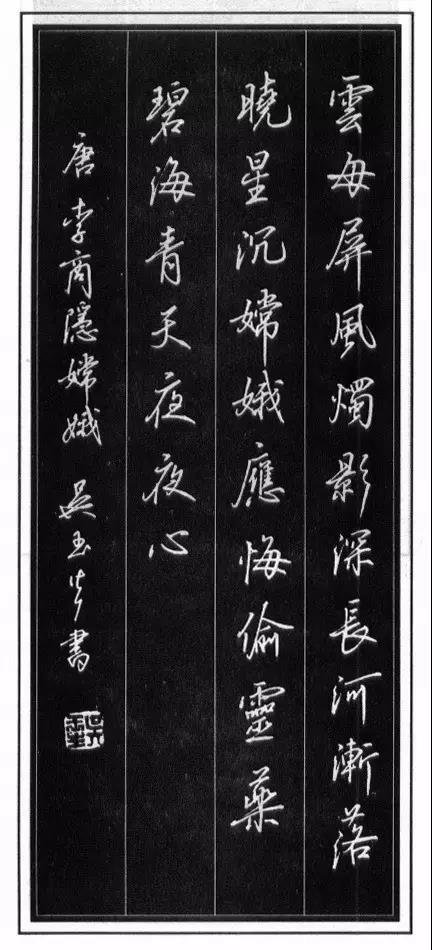 雲母屏風燭影深長河漸落
曉星沉嫦娥應悔偷靈藥
碧海青天夜夜心
唐李商隱嫦娥 吳玉生書